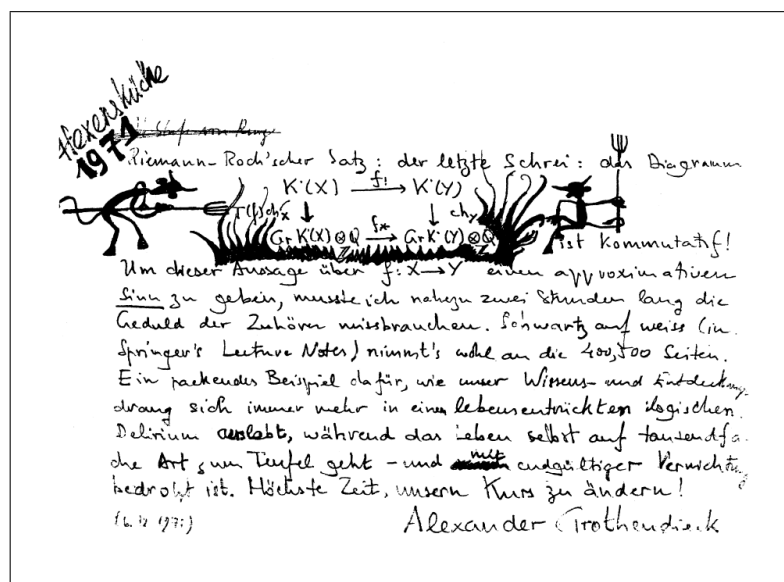 Hexenküche
1971
Riemann-Roch'scher Satz: der letzte Schrei: das Diagramm
K·(X) f! K·(Y)
T(f)ch_X ch_Y
Gr K·(X)⊗Q f* Gr K·(Y)⊗Q
Z Z
ist kommutatif!
Um dieser Aussage über f: X → Y einen approximativen
Sinn zu geben, musste ich nahezu zwei Stunden lang die
Geduld der Zuhörer missbrauchen. Schwartz auf weiss (in
Springer's Lecture Notes) nimmt's wohl an die 400, 500 Seiten.
Ein packendes Beispiel dafür, wie unser Wissens- und Entdeckungs-
drang sich immer mehr in einem lebensentrückten logischen
Delirium auslebt, während das Leben selbst auf tausendfa-
che Art zum Teufel geht - und mit endgültiger Vernichtung
bedroht ist. Höchste Zeit, unsern Kurs zu ändern!
Alexander Grothendieck